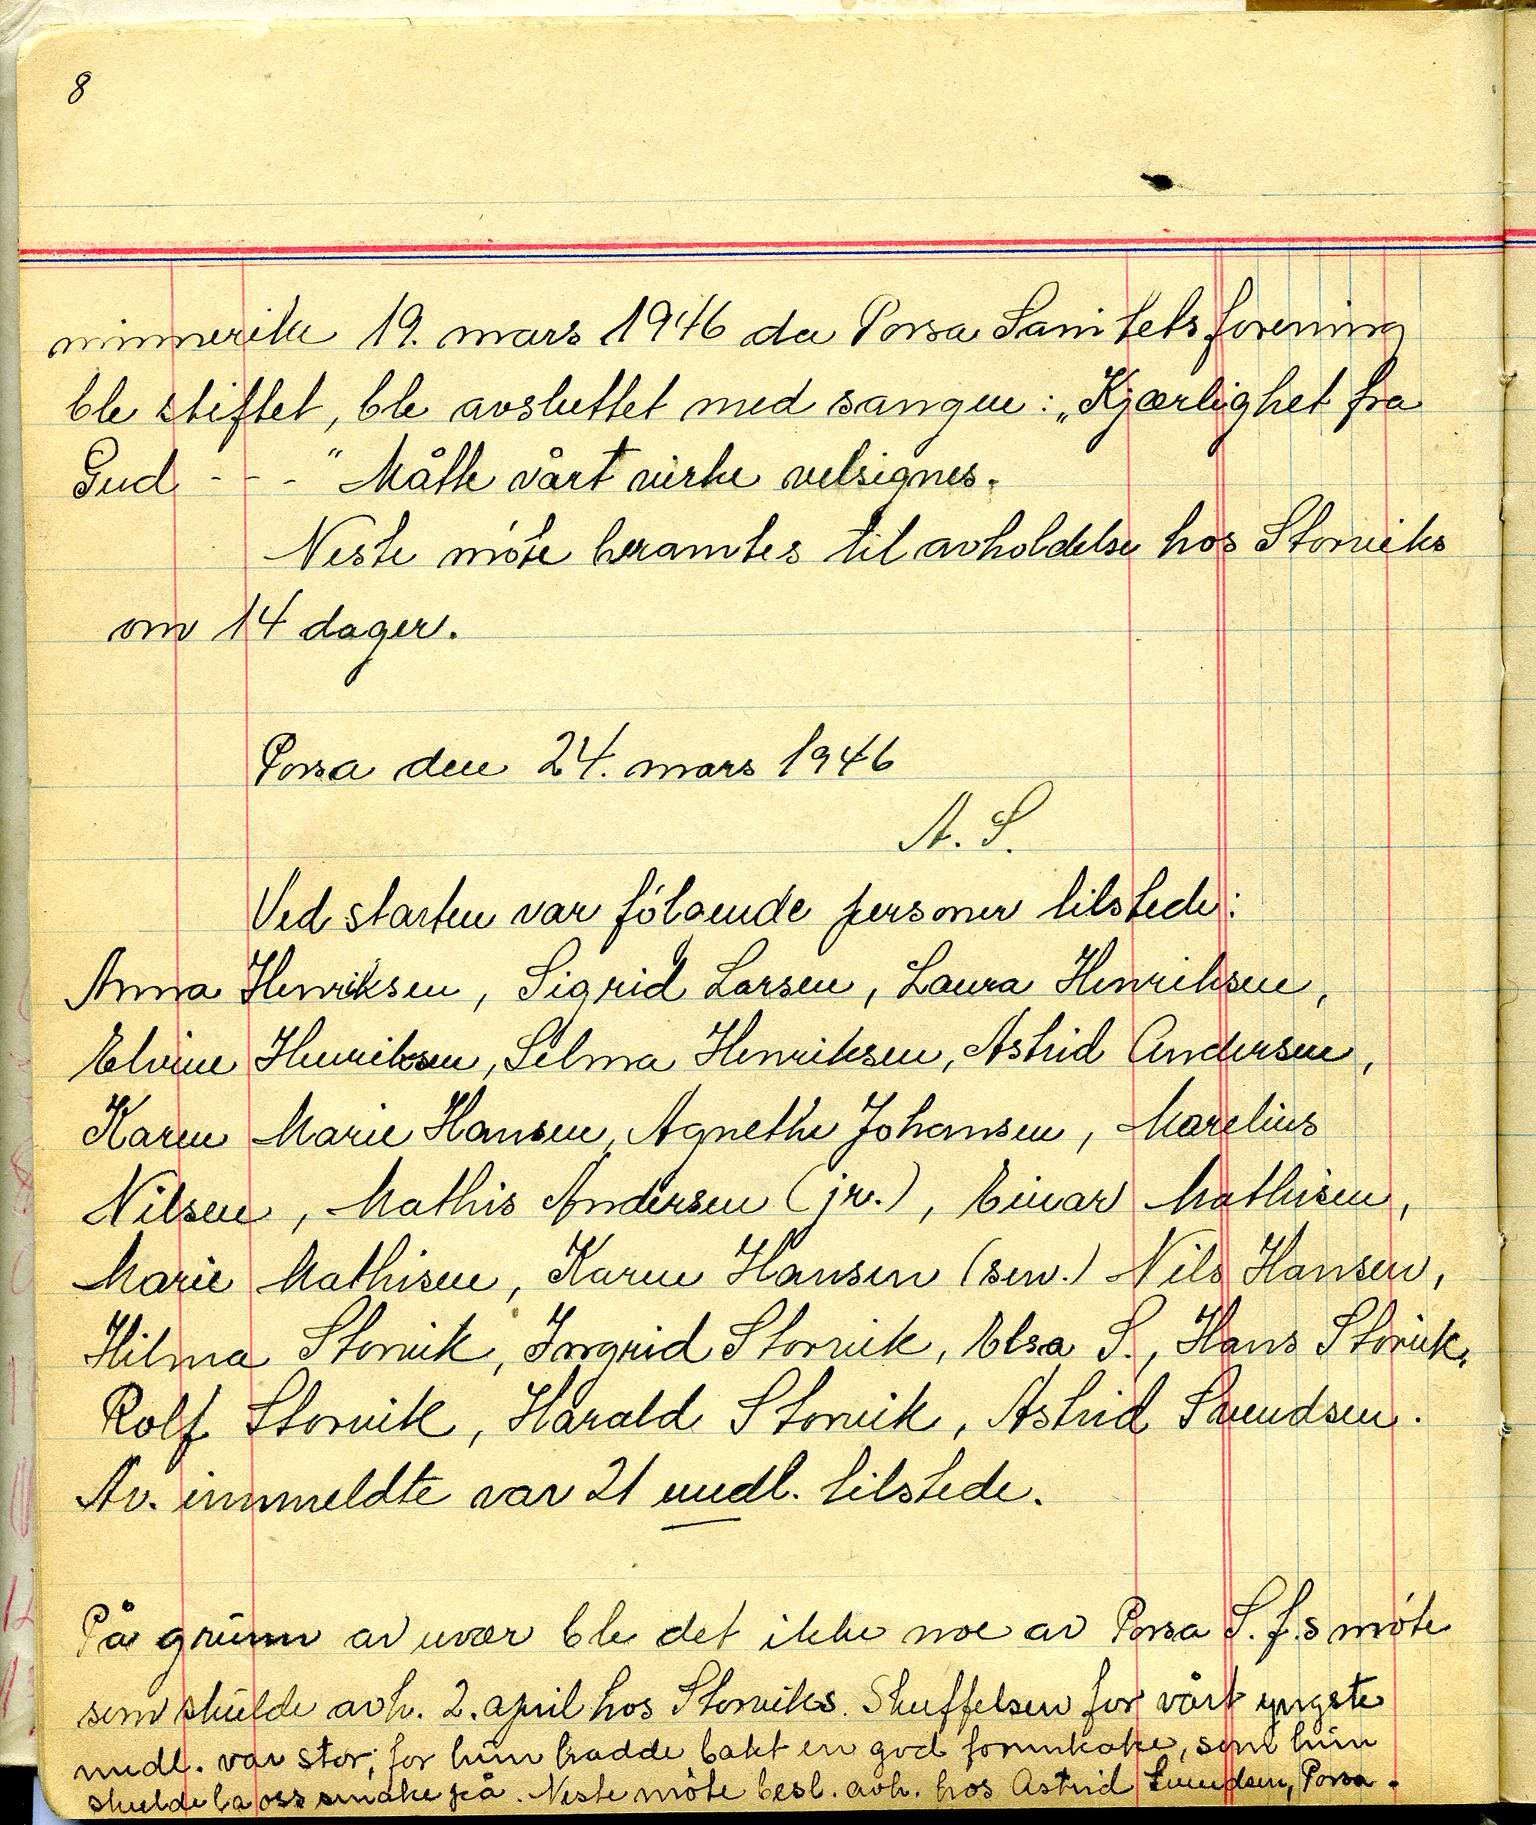 8
minnerike 19. mars 1946 da Porsa Sanitetsforening
ble stiftet, ble avsluttet med sangen: „Kjærlighet fra
Gud - - - " Måtte vårt virke velsignes.
Neste möte beramtes til avholdelse hos Storviks
om 14 dager.
Porsa den 24. mars 1946
A. S.
Ved starten var fölgende personer tilstede:
Anna Henriksen, Sigrid Larsen, Laura Henriksen,
Elvine Henriksen, Selma Henriksen, Astrid Andersen,
Karen Marie Hansen, Agnethe Johansen, Marelius
Nilsen, Mathis Andersen (jr.), Einar Mathisen,
Marie Mathisen, Karen Hansen (sen.) Nils Hansen,
Hilma Storvik, Ingrid Storvik, Elsa S., Hans Storvik,
Rolf Storvik, Harald Storvik, Astrid Svendsen.
Av. innmeldte var 21 medl. tilstede.
På grunn av uvær ble det ikke noe av Porsa S.f.s möte
som skulde avh. 2. april hos Storviks. Skuffelsen for vårt yngste
medl. var stor; for hun hadde bakt en god formkake, som hun
skulde la oss smake på. Neste möte besl. avh. hos Astrid Svendsen, Porsa.